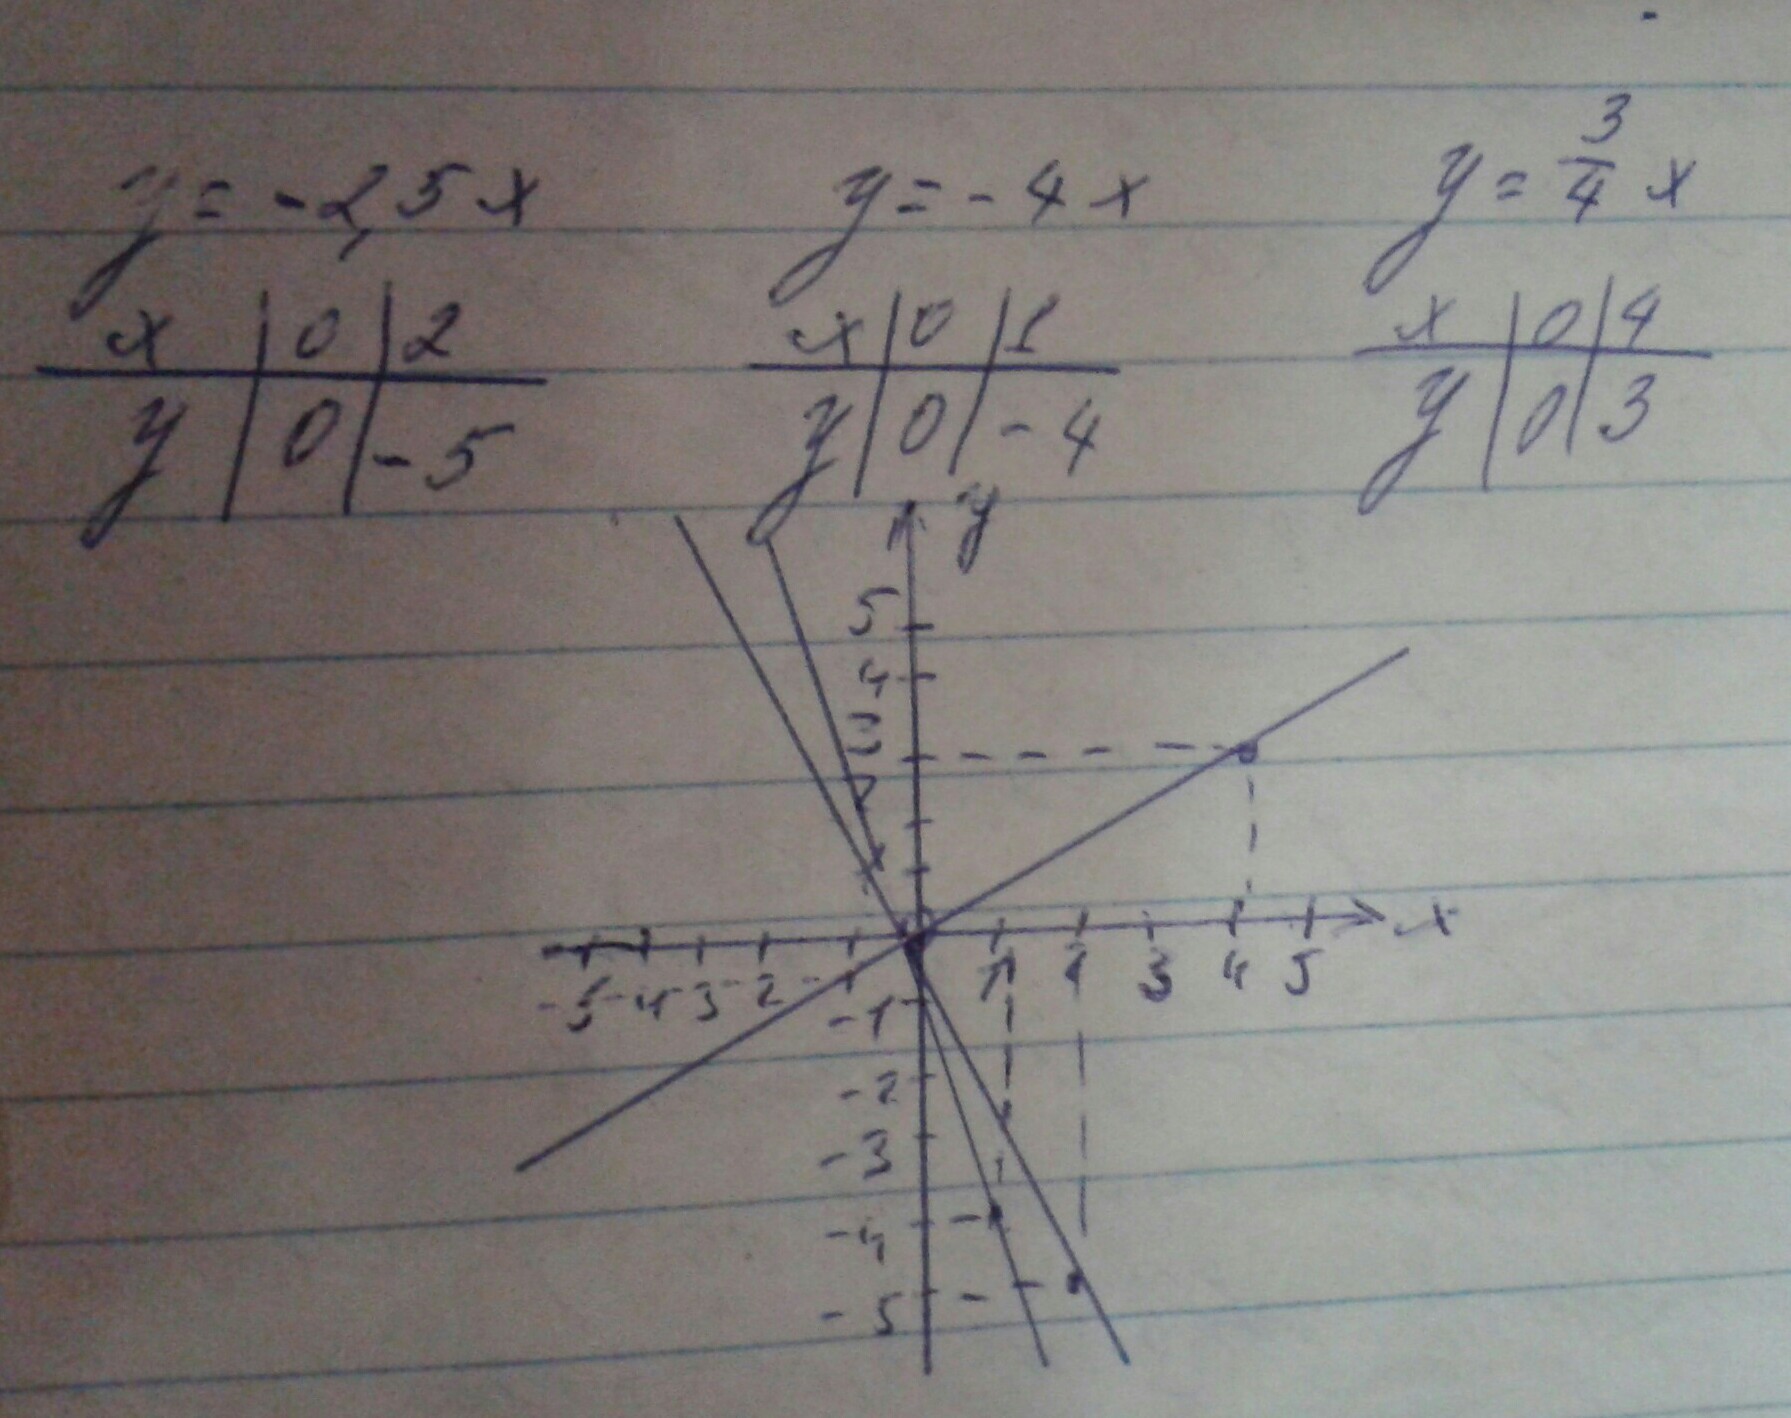 y = -2,5x y = -4x y = 3/4 x
x | 0 | 2 x | 0 | 1 x | 0 | 4
y | 0 | -5 y | 0 | -4 y | 0 | 3
y
5
4
3
2
x
-5 -4 -3 -2 -1 1 2 3 4 5
-1
-2
-3
-4
-5